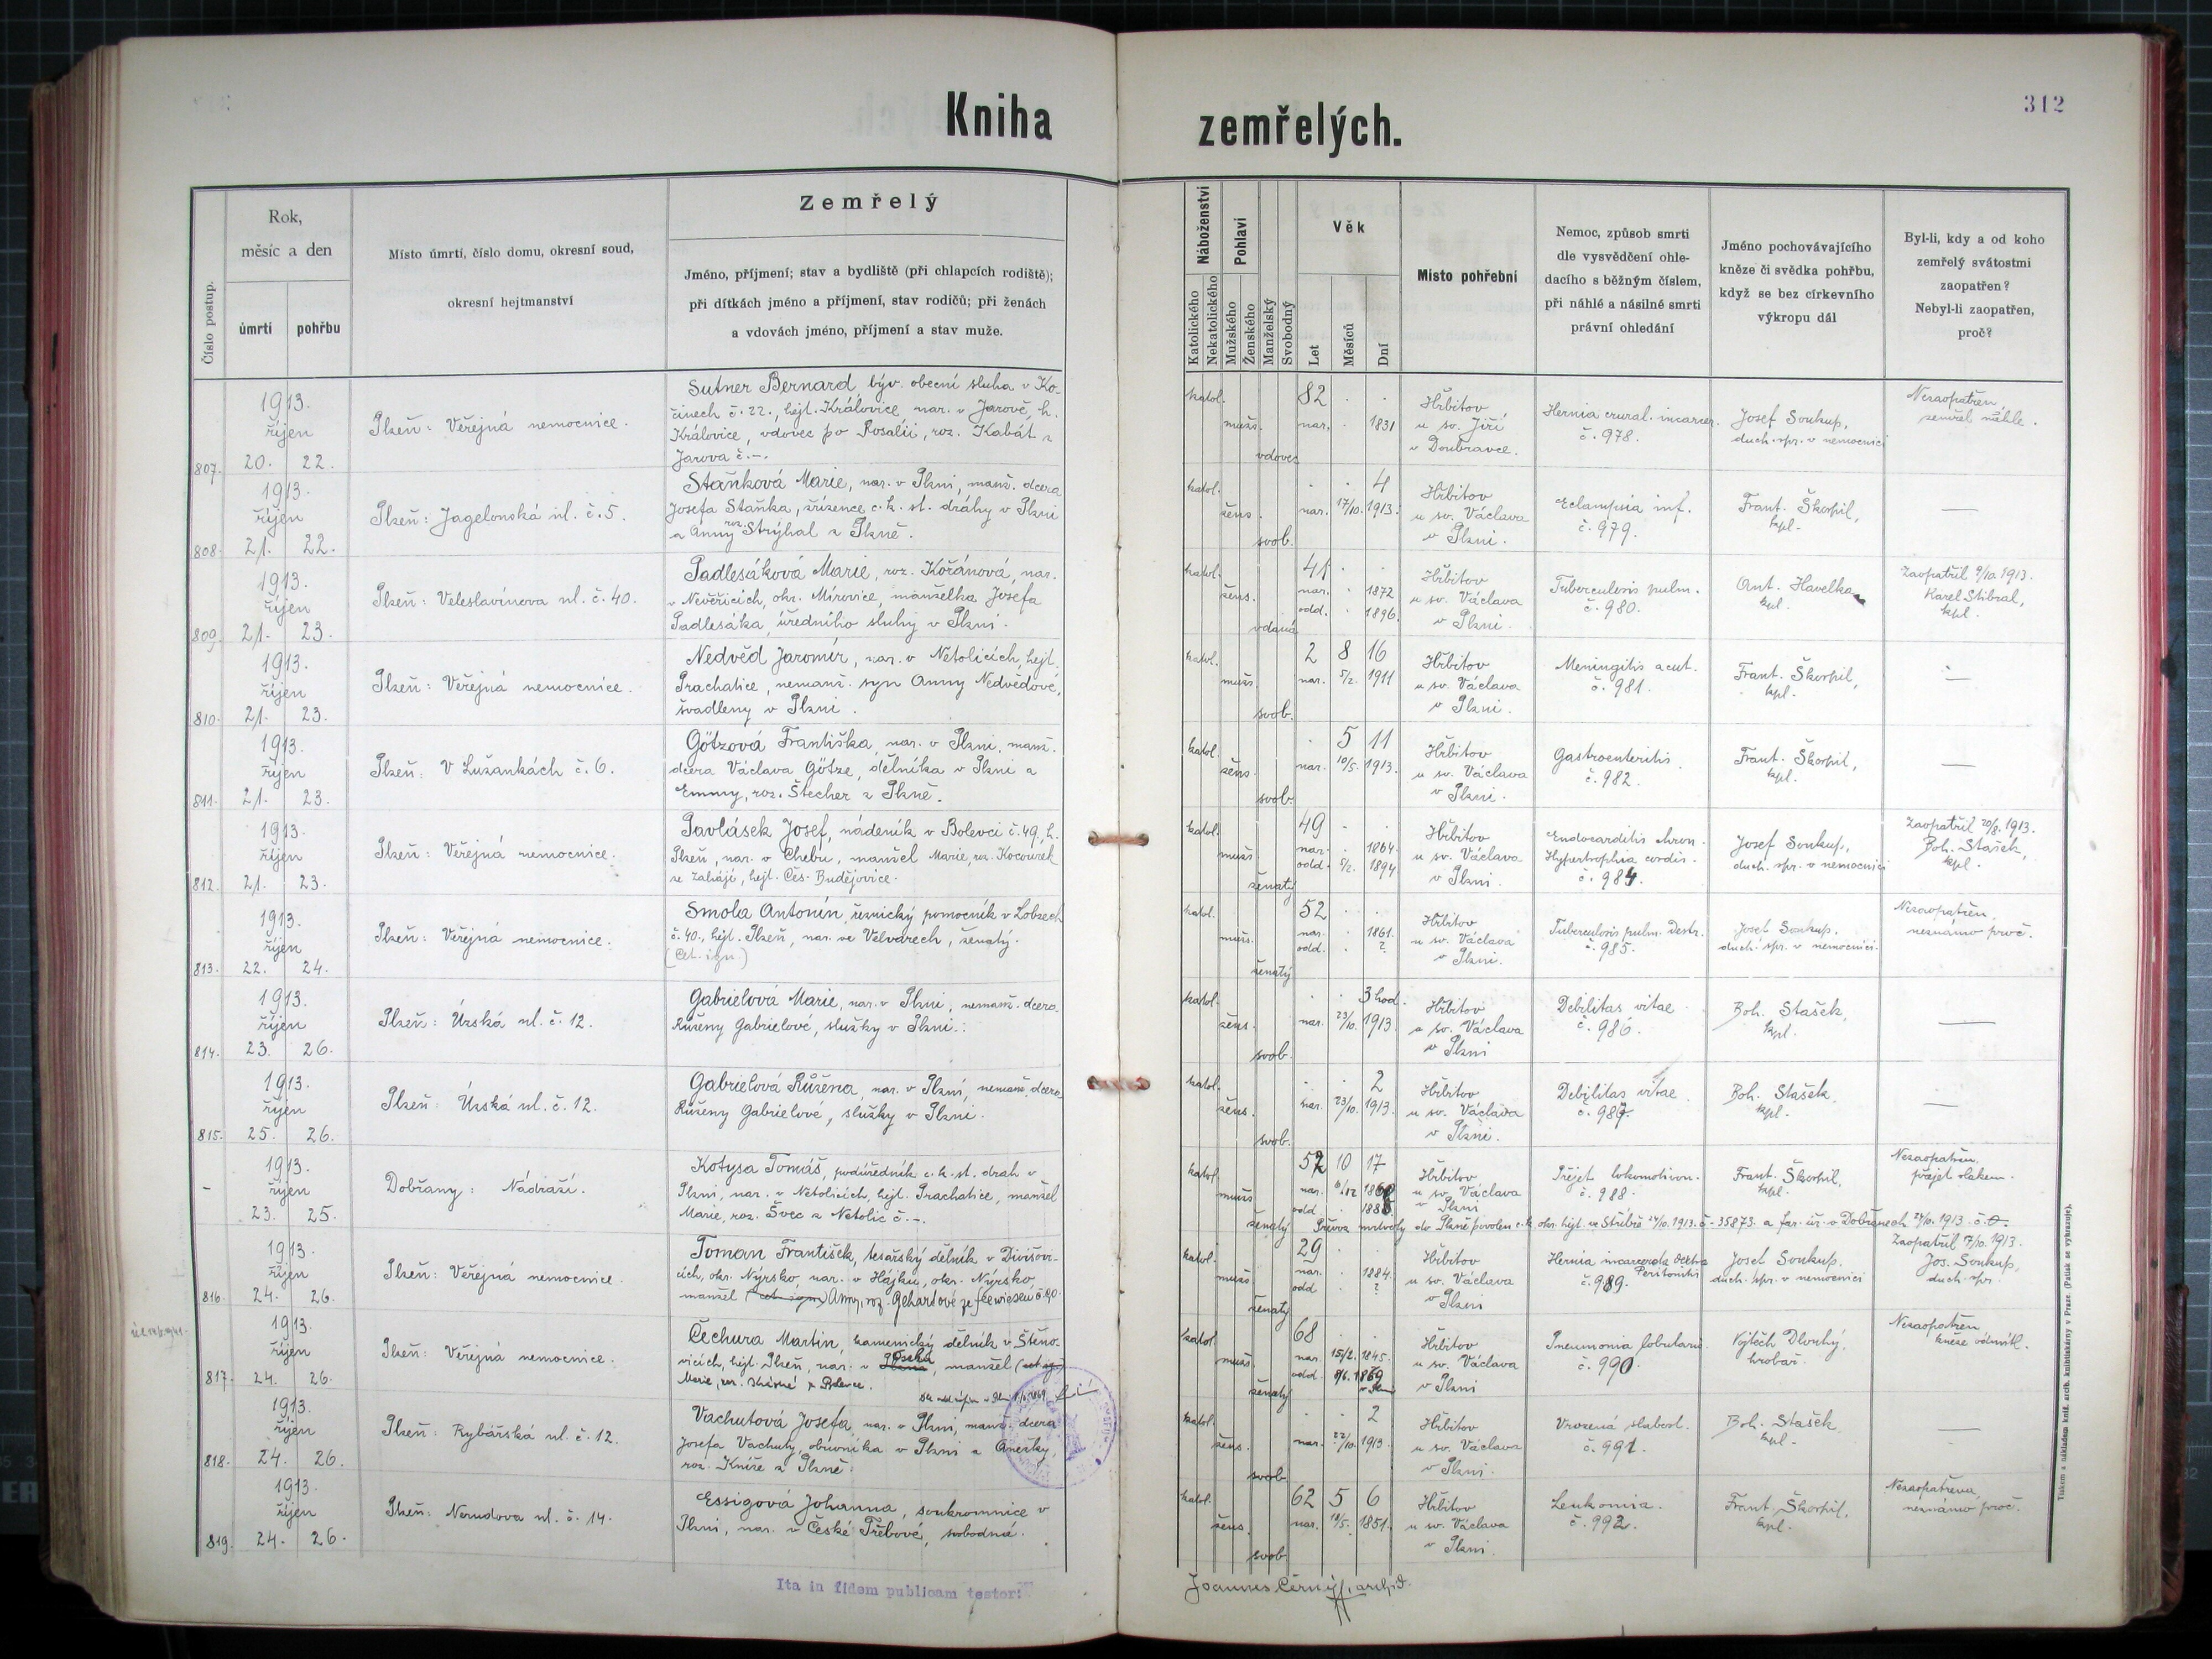 Kniha
zemřelých.
312
Číslo postup.
Rok,
měsíc a den
úmrtí
pohřbu
Místo úmrtí, číslo domu, okresní soud,
okresní hejtmanství
Zemřelý
Jméno, příjmení; stav a bydliště (při chlapcích rodiště);
při dítkách jméno a příjmení, stav rodičů; při ženách
a vdovách jméno, příjmení a stav muže.
Náboženství
Katolického
Nekatolického
Pohlaví
Mužského
Ženského
Manželský
Svobodný
Věk
Let
Měsíců
Dní
Místo pohřební
Nemoc, způsob smrti
dle vysvědčení ohle-
dacího s běžným číslem,
při náhlé a násilné smrti
právní ohledání
Jméno pochovávajícího
kněze či svědka pohřbu,
když se bez církevního
výkropu dál
Byl-li, kdy a od koho
zemřelý svátostmi
zaopatřen?
Nebyl-li zaopatřen,
proč?
807.
1913.
říjen
20. 22.
Plzeň: Veřejná nemocnice.
Sutner Bernard býv. obecní sluha v Ko-
činech č. 22., hejt. Královice, nar. v Jarově, h.
Královice, vdovec po Rosalii, roz. Kabát z
Jarova č. -.
katol.
mužs.
vdovec
82 . .
nar. . 1831
Hřbitov
u sv. Jiří
v Doubravce.
Hernia crural. incarcer.
č. 978.
Josef Soukup,
duch. spr. v nemocnici
Nezaopatřen,
zemřel náhle.
808.
1913.
říjen
21. 22.
Plzeň: Jagelonská ul. č. 5.
Staňková Marie, nar. v Plzni, manž. dcera
Josefa Staňka, zřízence c. k. st. dráhy v Plzni
a Anny roz. Strýhal z Plzně.
katol.
žens.
svob.
. . 4
nar. 17/10. 1913.
Hřbitov
u sv. Václava
v Plzni.
Eclampsia inf.
č. 979.
Frant. Škorpil,
kpl.
—
809.
1913.
říjen
21. 23.
Plzeň: Veleslavínova ul. č. 40.
Padlesáková Marie, roz. Kořánová, nar.
v Nevěřicích, okr. Mirovice, manželka Josefa
Padlesáka, úředního sluhy v Plzni.
katol.
žens.
vdaná
41 . .
nar. . 1872
odd. . 1896.
Hřbitov
u sv. Václava
v Plzni.
Tuberculosis pulm.
č. 980.
Ant. Havelka
kpl.
Zaopatřil 9/10. 1913.
Karel Stibral,
kpl.
810.
1913.
říjen
21. 23.
Plzeň: Veřejná nemocnice.
Nedvěd Jaromír, nar. v Netolicích, hejt.
Prachatice, nemanž. syn Anny Nedvědové,
švadleny v Plzni.
katol.
mužs.
svob.
2 8 16
nar. 5/2. 1911
Hřbitov
u sv. Václava
v Plzni.
Meningitis acut.
č. 981.
Frant. Škorpil,
kpl.
—
811.
1913.
říjen
21. 23.
Plzeň: V Lužankách č. 6.
Götzová Františka, nar. v Plzni, manž.
dcera Václava Götze, dělníka v Plzni a
Emmy, roz. Štecher z Plzně.
katol.
žens.
svob.
. 5 11
nar. 10/5. 1913.
Hřbitov
u sv. Václava
v Plzni.
Gastroenteritis.
č. 982.
Frant. Škorpil,
kpl.
—
812.
1913.
říjen
21. 23.
Plzeň: Veřejná nemocnice.
Pavlásek Josef, nádeník v Bolevci č. 49, h.
Plzeň, nar. v Chebu, manžel Marie, roz. Kocourek
ze Zahájí, hejt. Čes. Budějovice.
katol.
mužs.
ženatý
49 . .
nar. . 1864.
odd. 5/2. 1894
Hřbitov
u sv. Václava
v Plzni.
Endocarditis chron.
Hypertrophia cordis.
č. 984.
Josef Soukup,
duch. spr. v nemocnici
Zaopatřil 20/8. 1913.
Boh. Stašek,
kpl.
813.
1913.
říjen
22. 24.
Plzeň: Veřejná nemocnice.
Smola Antonín, řeznický pomocník v Lobzech
č. 40., hejt. Plzeň, nar. ve Velvarech, ženatý.
(Cet. ign.)
katol.
mužs.
ženatý
52 . .
nar. . 1861.
odd. . ?
Hřbitov
u sv. Václava
v Plzni.
Tuberculosis pulm. destr.
č. 985.
Josef Soukup.
duch. spr. v nemocnici.
Nezaopatřen,
neznámo proč.
814.
1913.
říjen
23. 26.
Plzeň: Úzská ul. č. 12.
Gabrielová Marie, nar. v Plzni, nemanž. dcera
Růženy Gabrielové, služky v Plzni.
katol.
žens.
svob.
. . 3 hod.
nar. 23/10. 1913.
Hřbitov
u sv. Václava
v Plzni
Debilitas vitae
č. 986.
Boh. Stašek,
kpl.
—
815.
1913.
říjen
25. 26.
Plzeň: Úzská ul. č. 12.
Gabrielová Růžena, nar. v Plzni, nemanž. dcera
Růženy Gabrielové, služky v Plzni.
katol.
žens.
svob.
. . 2
nar. 23/10. 1913.
Hřbitov
u sv. Václava
v Plzni.
Debilitas vitae.
č. 987.
Boh. Stašek,
kpl.
—
-
1913.
říjen
23. 25.
Dobřany: Nádraží.
Kotysa Tomáš, podúředník c. k. st. drah v
Plzni, nar. v Netolicích, hejt. Prachatice, manžel
Marie, roz. Švec z Netolic č. -.
katol.
mužs.
ženatý
52 10 17
nar. 6/12
odd.
Hřbitov
u sv. Václava
v Plzni
Přejet lokomotivou.
č. 988.
Frant. Škorpil,
kpl.
Nezaopatřen,
přejet vlakem.
Převoz mrtvoly do Plzně povolen c. k. okr. hejt. ve Stříbře 24/10. 1913. č. 35873. a far. úř. v Dobřanech 24/10. 1913. č. 0.
816.
1913.
říjen
24. 26.
Plzeň: Veřejná nemocnice.
Toman František, tesařský dělník v Divišov-
icích, okr. Nýrsko, nar. v Hájku, okr. Nýrsko,
manžel Anny, roz. Gehartové ze
katol.
mužs.
ženatý
29 . .
nar. . 1884.
odd. . ?
Hřbitov
u sv. Václava
v Plzni
Hernia incarcerata
Peritonitis
č. 989.
Josef Soukup.
duch. spr. v nemocnici
Zaopatřil 7/10. 1913.
Jos. Soukup,
duch. spr.
817.
1913.
říjen
24. 26.
Plzeň: Veřejná nemocnice.
Čechura Martin, kamenický dělník v Štěno-
vicích, hejt. Plzeň, nar. v manžel
Marie, roz. z Bolevce.
katol.
mužs.
ženatý
68 . .
nar. 15/2. 1845.
odd. 8/6. 1869
Hřbitov
u sv. Václava
v Plzni
Pneumonia lobularis.
č. 990.
Vojtěch Dlouhý,
hrobař.
Nezaopatřen
kněze odmítl.
818.
1913.
říjen
24. 26.
Plzeň: Rybářská ul. č. 12.
Vachutová Josefa, nar. v Plzni, manž. dcera
Josefa Vachuty, obuvníka v Plzni a Anežky,
roz. Kníže z Plzně.
katol.
žens.
svob.
. . 2
nar. 22/10. 1913.
Hřbitov
u sv. Václava
v Plzni.
Vrozená slabost.
č. 991.
Boh. Stašek
kpl.
—
819.
1913.
říjen
24. 26.
Plzeň: Nerudova ul. č. 14.
Essigová Johanna, soukromnice v
Plzni, nar. v České Třebové, svobodná.
katol.
žens.
svob.
62 5 6
nar. 1851.
Hřbitov
u sv. Václava
v Plzni.
Leukomia.
č. 992.
Frant. Škorpil,
kpl.
Nezaopatřena,
neznámo proč.
Ita in fidem publicam testor:
Joannes Černý, archid.
Tiskem a nákladem kníž. arcib. knihtiskárny v Praze. (Padělek se vyhrazuje).